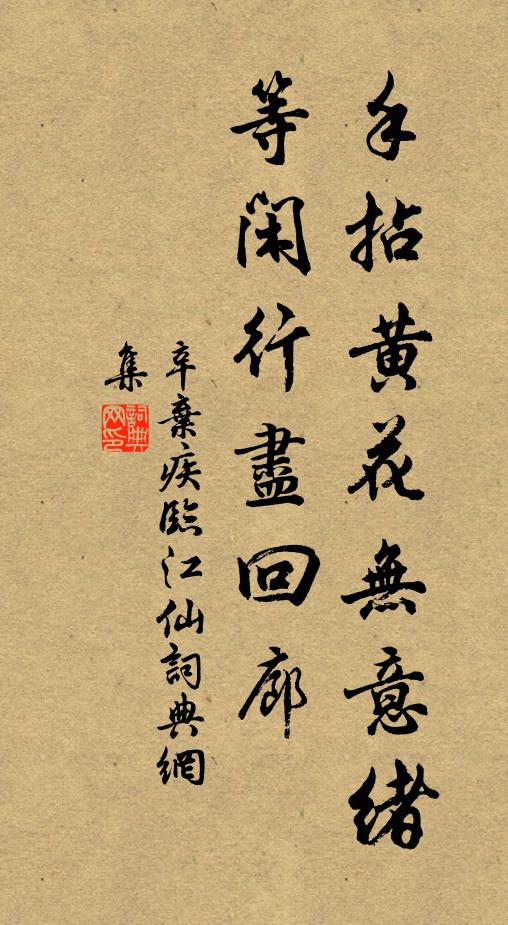 手拈黄花無意緒
等閑行盡回廊
辛棄疾臨江仙詞典網
集
詞典网印